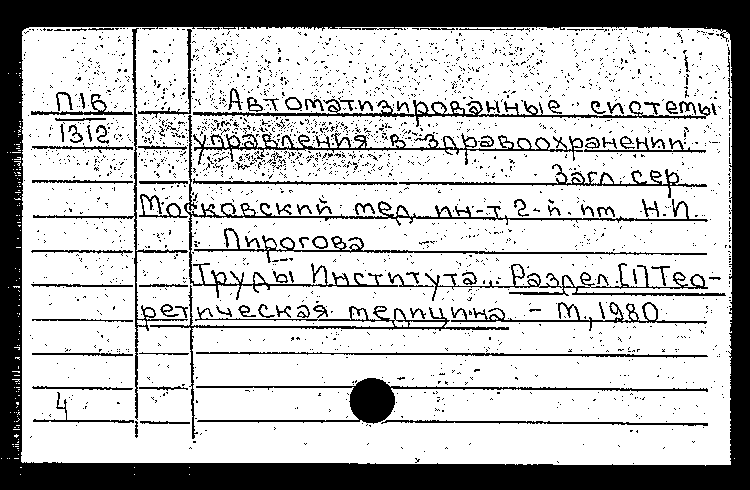 П16 Автоматизированные системы
1312 управления в здравоохранении.
Загл. сер.
Московский мед. ин-т, 2-й. им. Н.И.
Пирогова
Труды Института... Раздел. [1] Тео-
ретическая медицина. - М., 1980
4